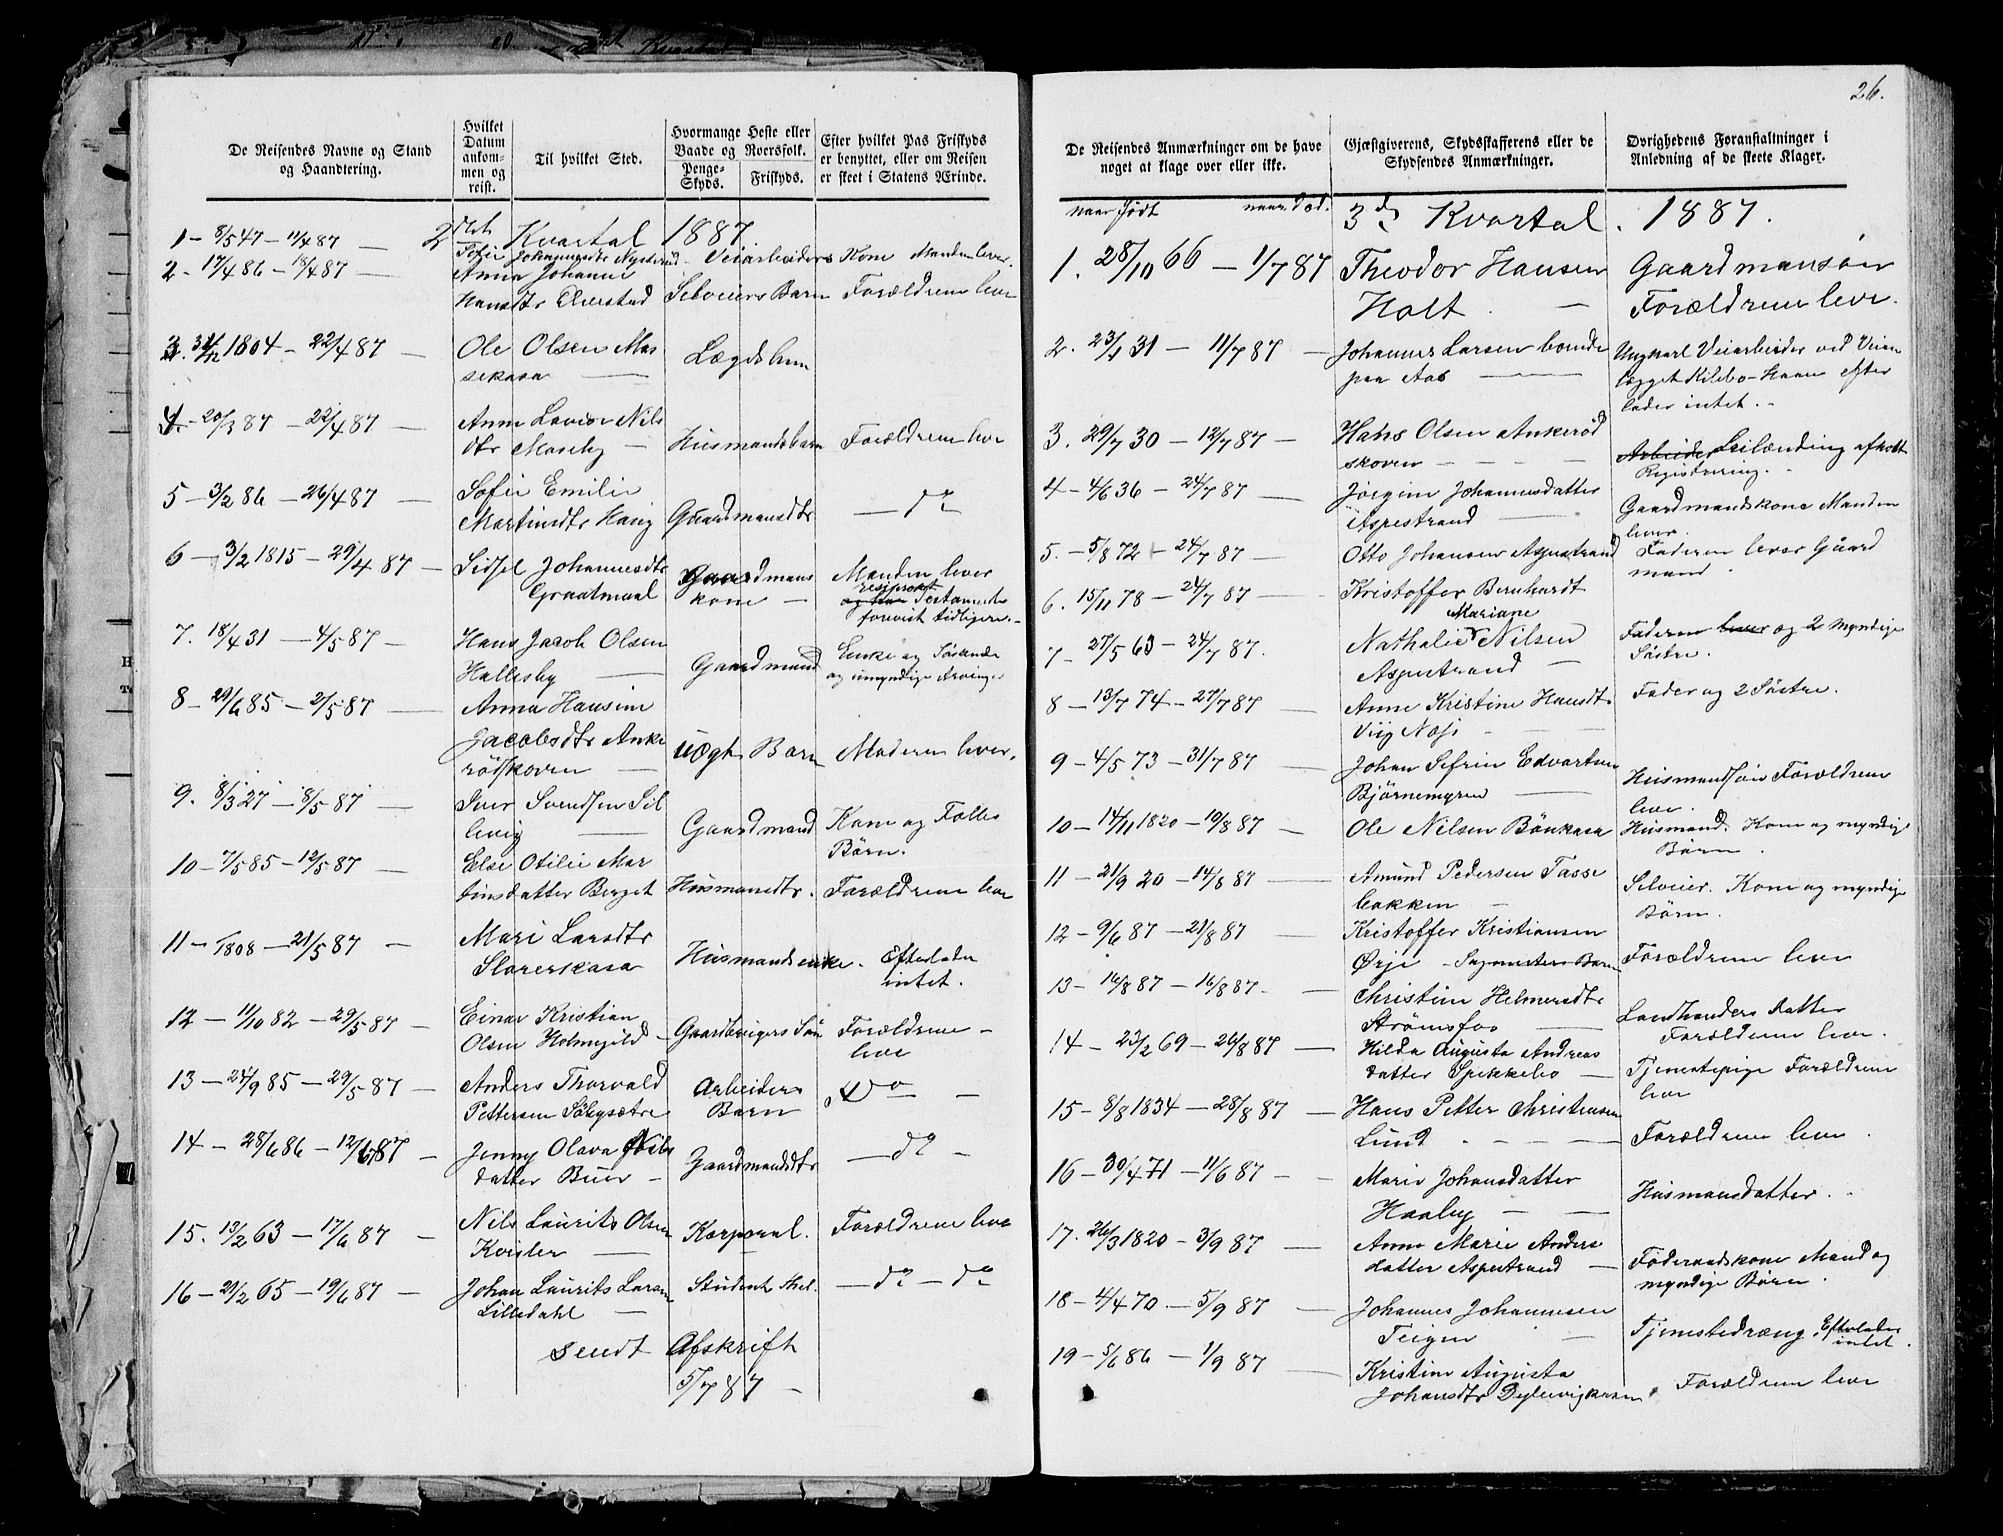 26.
De Reisendes Navne og Stand og Haandtering.
Hvilket Datum ankommen og reist.
Til hvilket Sted.
Hvormange Heste eller Baade og Roersfolk.
Penge-Skyds.
Friskyds.
Efter hvilket Pas Friskyds er benyttet, eller om Reisen er skeet i Statens Ærinde.
2det Kvartal 1887.
1 - 8/5 47 - 11/4 87 — Sofie Johannesdtr Nysterud - Veiarbeiders Kone Manden lever.
2 - 17/4 86 - 18/4 87 — Anna Johanne
Hansdtr Elverstad Selveiers Barn Forældrene leve
3. 31/12 1804 - 22/4 87 — Ole Olsen Mas
sekasa — Lægdslem
4. - 20/3 87 - 22/4 87 — Anne Lovise Nils
dtr Moseby — Husmandsbarn Forældrene leve
5 - 3/2 86 - 26/4 87 — Sofie Emilie
Martinsdtr Haug Gaardmansdtr — do
6 - 3/2 1815 - 29/4 87 — Sidsel Johannesdtr Gaardmans Manden lever
Graatmaal kone — resiprokt
og har Testamente
forevist tidligere. -
7. 18/4 31 - 4/5 87 — Hans Jacob Olsen
Hallesby — Gaardmand Enke og Søskende
og umyndige Arvinger
8 - 29/6 85 - 2/5 87 — Anna Hansine
Jacobsdtr Anke
rødskoven — uægte Barn Moderen lever.
9. 8/3 27 - 8/5 87 — Iver Svendsen Sil
levig — Gaardmand Kone og Fælles
Børn.
10 - 7/5 85 - 12/5 87 — Else Otilie Mar
tinsdatter Berget Husmansdtr. Forældrene leve
11 - 1808 - 21/5 87 — Mari Larsdtr
Slorerkasa Husmandsenke. Efterlader
intet.
12 - 11/10 82 - 29/5 87 — Einar Kristian
Olsen Holmgild - Gaardbrugers Søn Forældrene -
leve
13 - 25/9 85 - 29/5 87 — Anders Thorvald Arbeiders do —
Pettersen Søbysætre Barn
14 - 28/6 86 - 12/6 87 — Jenny Olava Nils
datter Buer - Gaardmandsdtr — do -
15. 13/2 63 - 17/6 87 — Nils Laurits Olsen Korporal. Forældrene leve
Kvisler —
16 - 29/2 65 - 19/6 87 — Johan Laurits Larsen Student — do — do
Lilledahl —
Sendt Afskrift
5/7 87 -
De Reisendes Anmærkninger om de have noget at klage over eller ikke.
Gjæstgiverens, Skydsskafferens eller de Skydsendes Anmærkninger.
Øvrighedens Foranstaltninger i Anledning af de skeete Klager.
naar født naar død. 3de Kvartal. 1887.
1. 28/10 66 - 1/7 87 Theodor Hansen Gaardmansøn
Holt. — Forældrene leve.
2. 23/1 31 - 11/7 87 — Johannes Larsen boende Ungkarl Veiarbeider ved Veian
paa Aas — lægget Kilebo-Haam efter
lader intet. -
3. 29/7 30 - 12/7 87 — Hans Olsen Ankerød
skoven — Arbeider Leilænding afholdt
Registrering. -
4 - 4/6 36 - 24/7 87 — Jørgine Johannesdatter Gaardmandskone Manden
Aspestrand — lever.
5. - 5/8 72 - 24/7 87 — Otto Johansen Aspestrand Faderen lever Gaard
mand.
6. 15/11 78 - 24/7 87 — Kristoffer Bernhardt
Mariane
7 - 27/5 63 - 24/7 87. Nathalie Nilsen Faderen lever og 2 myndige
Aspestrand — Søstre.
8 - 13/7 74 - 27/7 87 — Anne Kristine Hansdtr Fader og 2 Søstre.
Viig Næs -
9 - 4/5 73 - 31/7 87 — Johan Sefrin Edvartsen Husmandsøn Forældrene
Bjørnemyren — leve.
10 - 14/11 1820 - 10/8 87 — Ole Nilsen Bönkasa Husmand. Kone og myndige
Børn.
11 - 21/9 20 - 14/8 87 — Amund Pedersen Tasse Selveier. Kone og myndige
bakken - Børn.
12 - 9/6 87 - 21/8 87 — Kristoffer Kristiansen
Ørje - Sagmesters Barn Forældrene leve
13 - 16/8 87 - 16/8 87 - — Christine Helmersdtr Landhandlers datter
Strømsfos — Forældrene leve.
14 - 23/2 69 - 26/8 87 — Hilda Augusta Andreas Tjenestepige Forældrene
datter Spekkebo — leve
15 - 8/8 1834 - 28/8 87 — Hans Petter Christensen
Lund - Forældrene leve.
16 - 30/4 71 - 11/6 87 — Marie Johansdatter Husmansdatter.
Haaby —
17. 26/3 1820 - 3/9 87 — Anne Marie Anders Føderaadskone Mand og
datter Aspestrand — myndige Børn.
18 - 4/4 70 - 5/9 87 — Johannes Johannesen
Teigen — Tjenestedræng. Efterlader
intet.
19 - 5/6 86 - 1/9 87 — Kristine Augusta
Johansdtr Forældrene leve